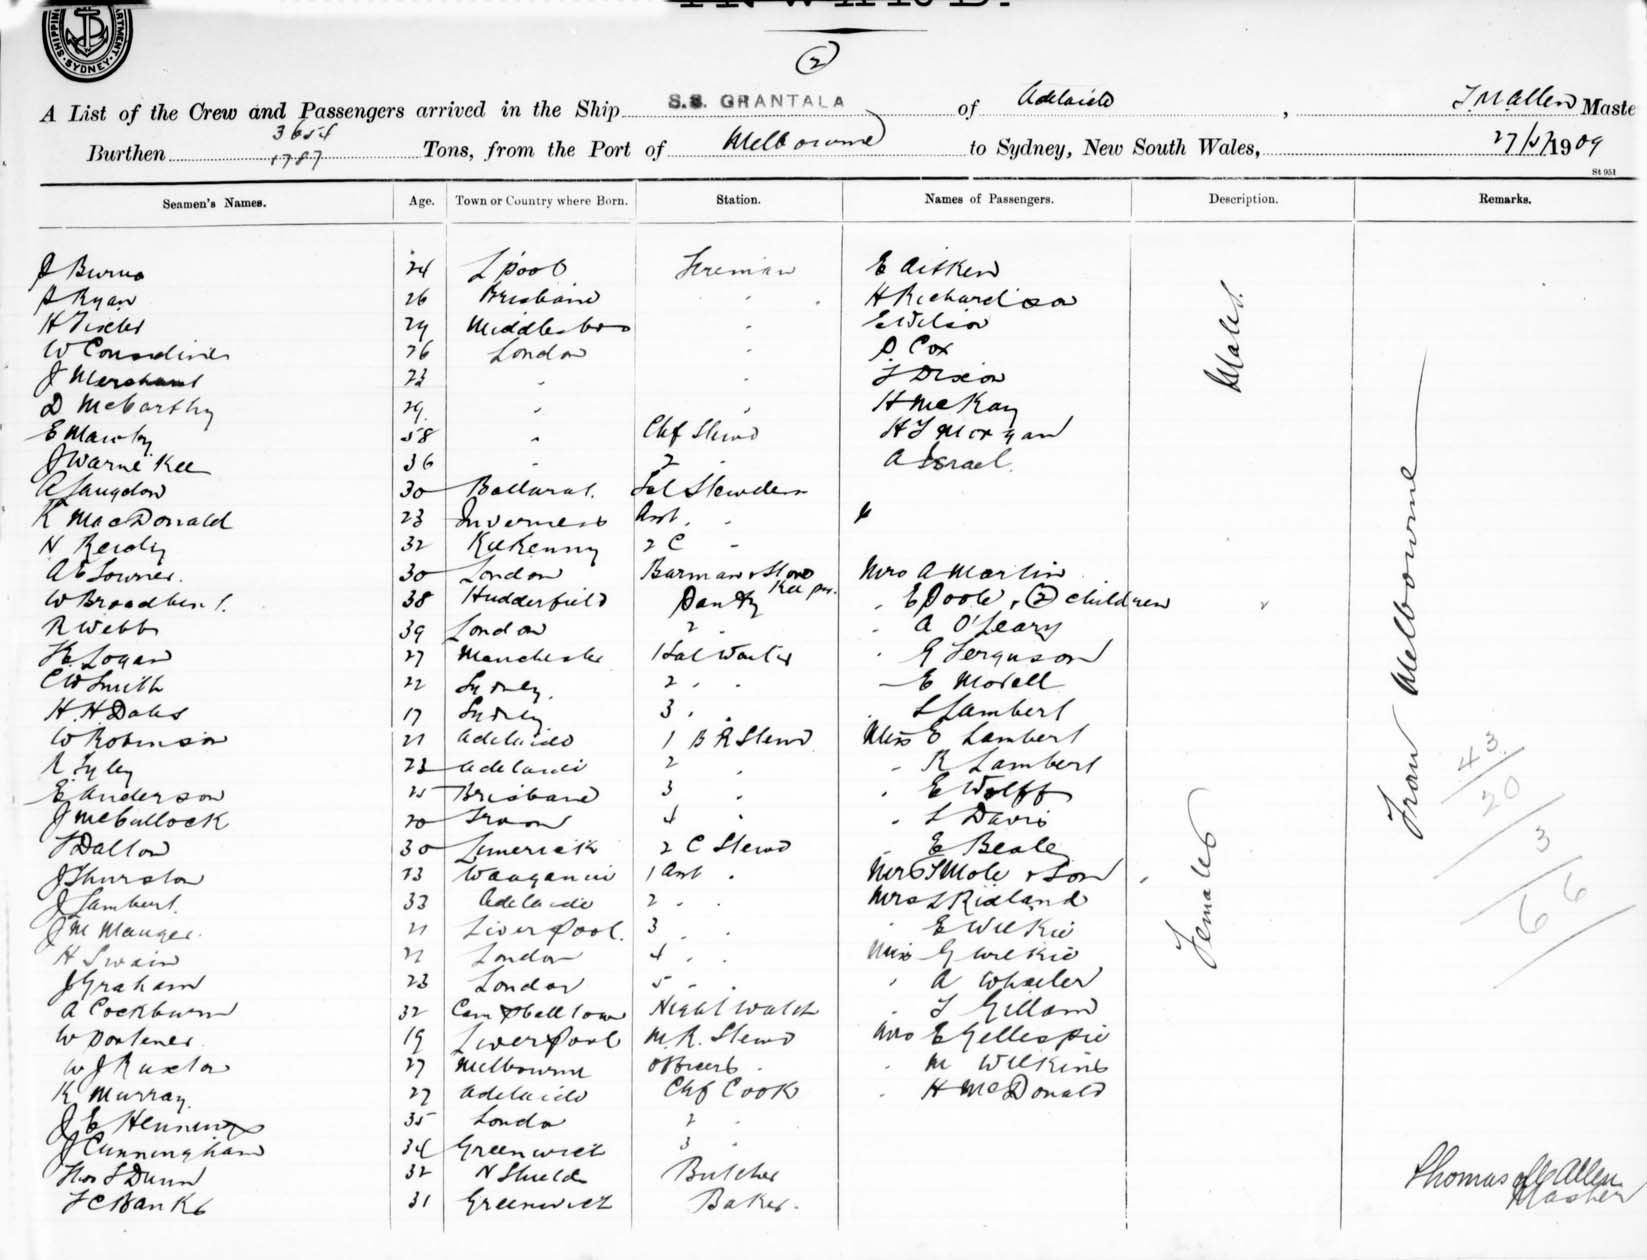 SYDNEY
②
A List of the Crew and Passengers arrived in the Ship S.S. GRANTALA of Adelaide, T M Allen Maste
Burthen 3654 1787 Tons, from the Port of Melbourne to Sydney, New South Wales, 27/5/1909
St 951
Seamen's Names. Age. Town or Country where Born. Station. Names of Passengers. Description. Remarks.
J Burns 24 L'pool Fireman E Aitken
A Ryan 26 Brisbane " H Richardson
H 29 Middlesbro " E Wilson
W Considine 26 London " Cox
J Merchant 23 " " F Dixon
D McCarthy 29 " " H McKay
E Mawby 58 " Chf Stewd H F Morgan
J Warne Kee 36 " 2 " A Israel
A Langdon 30 Ballarat Sal Stewdess
K MacDonald 23 Inverness Asst "
N Reidy 32 Kilkenny 2 C "
A E 30 London Barman & Store Kee per Mrs A Martin
W Broadbent 38 Hudderfield Pantry " E Poole, ② children
R Webb 39 London 2 " " A O'Leary
Logan 27 Manchester 1 Sal Waiter " Ferguson
C W Smith 22 Sydney 2 " " E Morell
H. H Dales 17 Sydney 3 " " L Lambert
W Robinson 21 Adelaide 1 B R Stewd Miss O Lambert
R 23 Adelaide 2 " " R Lambert
E Anderson 25 Brisbane 3 " " E Wolff
J McCullock 20 Troon 4 " " L Davis
T Dalton 30 Limerick 2 C Stewd " E Bealey
J Thurston 23 Wanganui 1 Asst " Mrs T Mole & Son
J Lambert 33 Adelaide 2 " " Mrs L Ridland
J M Mauger 21 Liverpool 3 " " " E Wilkie
H Swain 22 London 4 " " Miss G Wilkie
J Graham 23 London 5 " " " A Wheeler
A Cockburn 32 Campbelltown Night Watch " Gillam
W 19 Liverpool M. R. Stewd Mrs E Gillespie
W J Ruxton 27 Melbourne Officers " " M Wilkins
K Murray 27 Adelaide Chf Cook " H McDonald
J E Hennings 35 London 2 "
J Cunningham 34 Greenwich 3 "
Thos S Dunn 32 N Shields Butcher
F C Banks 31 Greenwich Baker.
Males
Females
From Melbourne
43
20
3
66
Thomas M Allen
Master